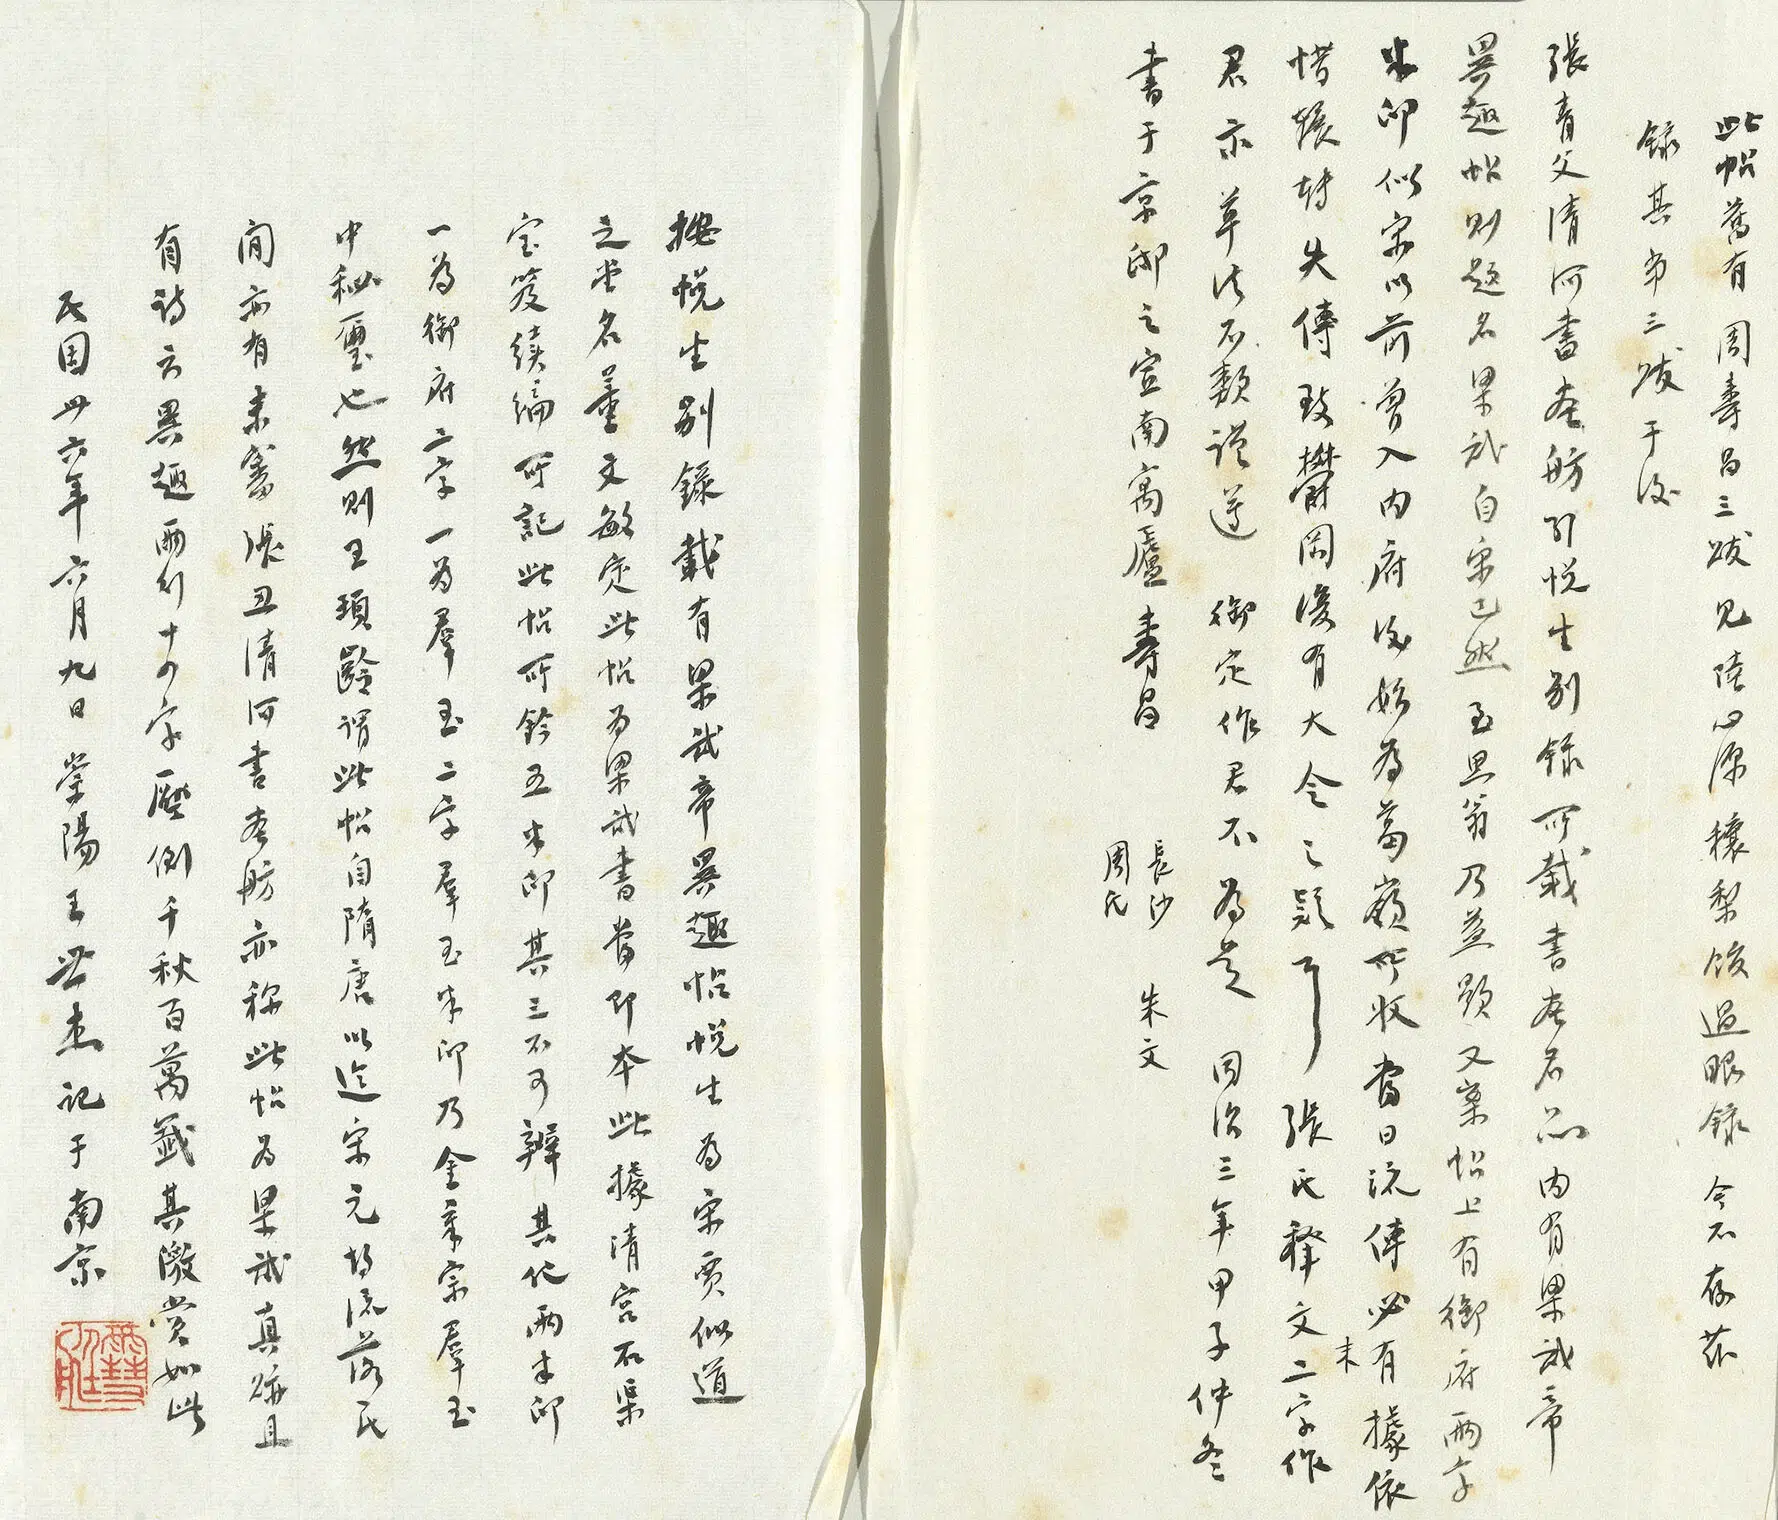 此帖舊有周壽昌三跋見陸心源穰梨館過眼錄今不存茲
錄其第三跋于後
張青父清河書畫舫引悅生別錄所載書畫名品內有梁武帝
異趣帖則題名梁武自宋已然至思翁乃並題又案帖上有御府兩字
朱印似宋以前曾入內府後始為葛嶺所收當日流傳必有據依
惜輾轉失傳致鬱岡復有大令之疑耳張氏釋文二字作
末
君亦草法不類謹遵御定作君不為是同治三年甲子仲冬
書于京邸之宣南寓廬壽昌
長沙
周氏
朱文
按悅生別錄載有梁武帝異趣帖悅生為宋賈似道
之堂名董文敏定此帖為梁武書當即本此據清宮石渠
寶笈續編所記此帖所鈐五朱印其三不可辨其他兩朱印
一為御府二字一為羣玉二字羣玉朱印乃金章宗羣玉
中秘璽也然則王頊齡謂此帖自隋唐以迄宋元均流落民
間亦有未審張丑清河書畫舫亦稱此帖為梁武真跡且
有詩云異趣兩行十四字壓倒千秋百萬籤其激賞如此
民國卅六年六月九日滎陽王世杰記于南京